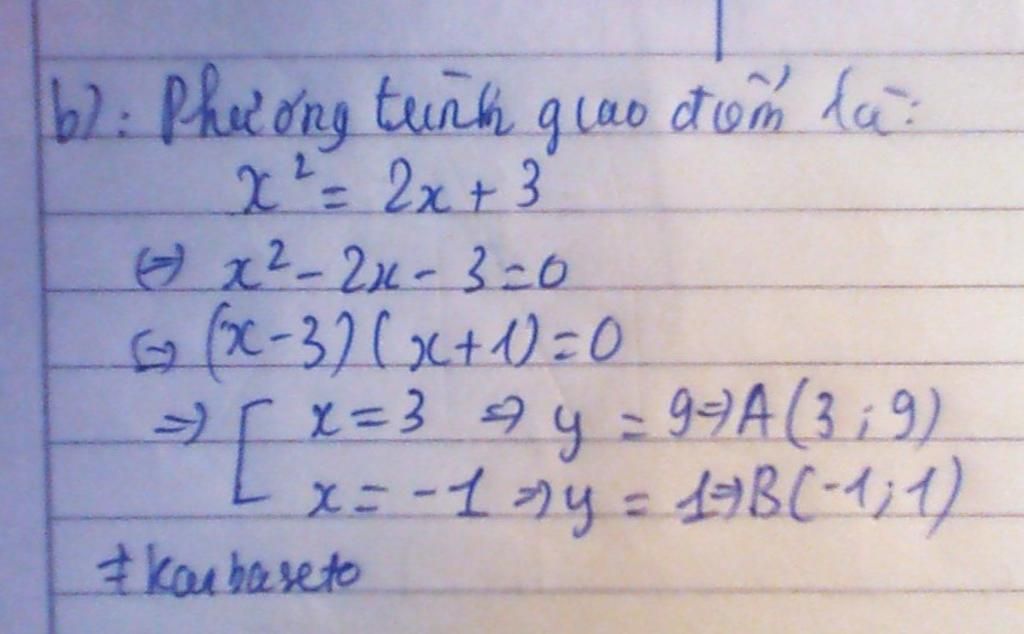 b): Phương trình giao điểm là:
x² = 2x + 3
⇔ x² - 2x - 3 = 0
⇔ (x - 3)(x + 1) = 0
⇒ [ x = 3 ⇒ y = 9 ⇒ A(3; 9)
x = -1 ⇒ y = 1 ⇒ B(-1; 1)
≠ kaubaseto